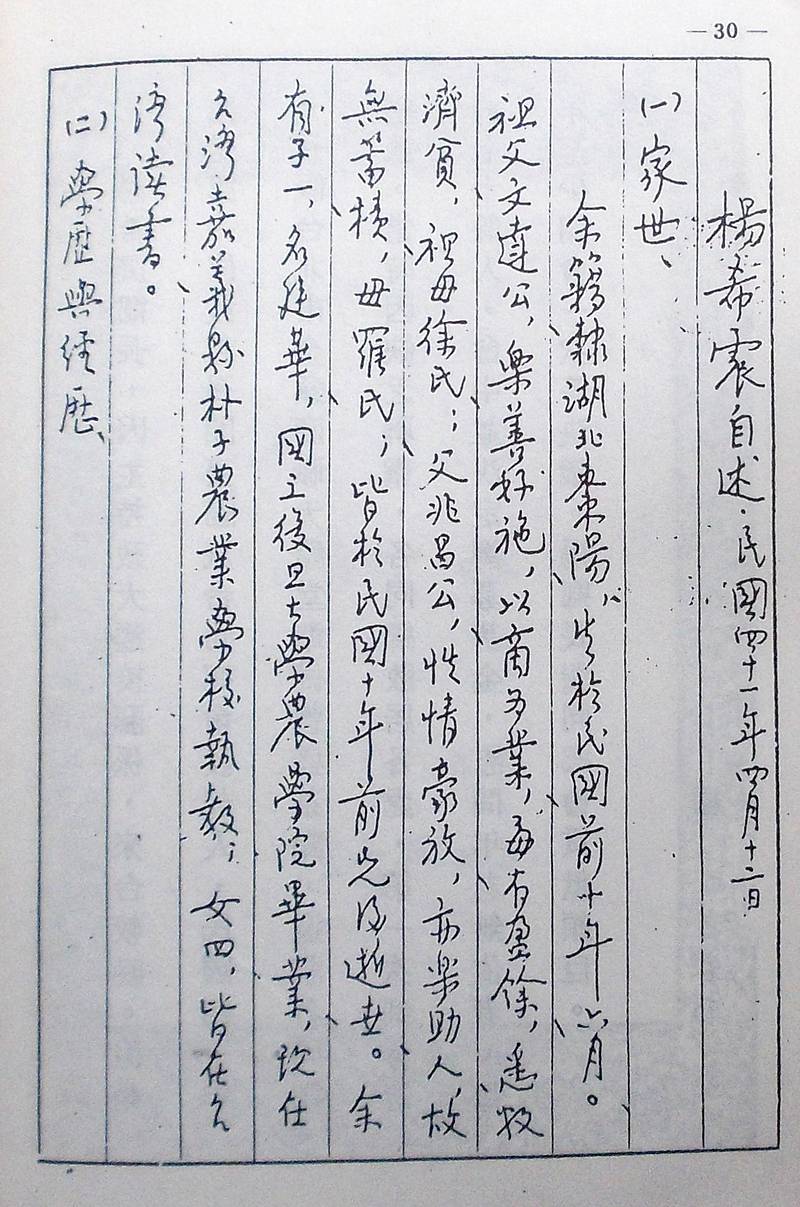 — 30 —
楊希震自述·民國四十一年四月十二日
(一)家世、
余籍隸湖北棗陽,生於民國前十年六月。
祖父文達公,樂善好施,以商为業,每有盈餘,悉救
濟貧,祖母徐氏;父兆昌公,性情豪放,亦樂助人,故
無蓄積,母羅氏;皆於民國十年前先後逝世。余
有子一,名廷華,國立復旦大學農學院畢業,現任
台灣嘉義縣朴子農業學校執教;女四,皆在台
灣讀書。
(二)學歷與經歷、